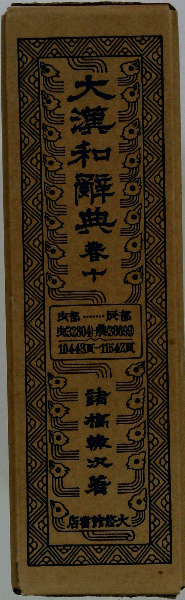 大漢和辭典 卷十
虫部……辰部
虫(32804)—農(38699)
10443頁—11542頁
諸橋轍次著
大修館書店